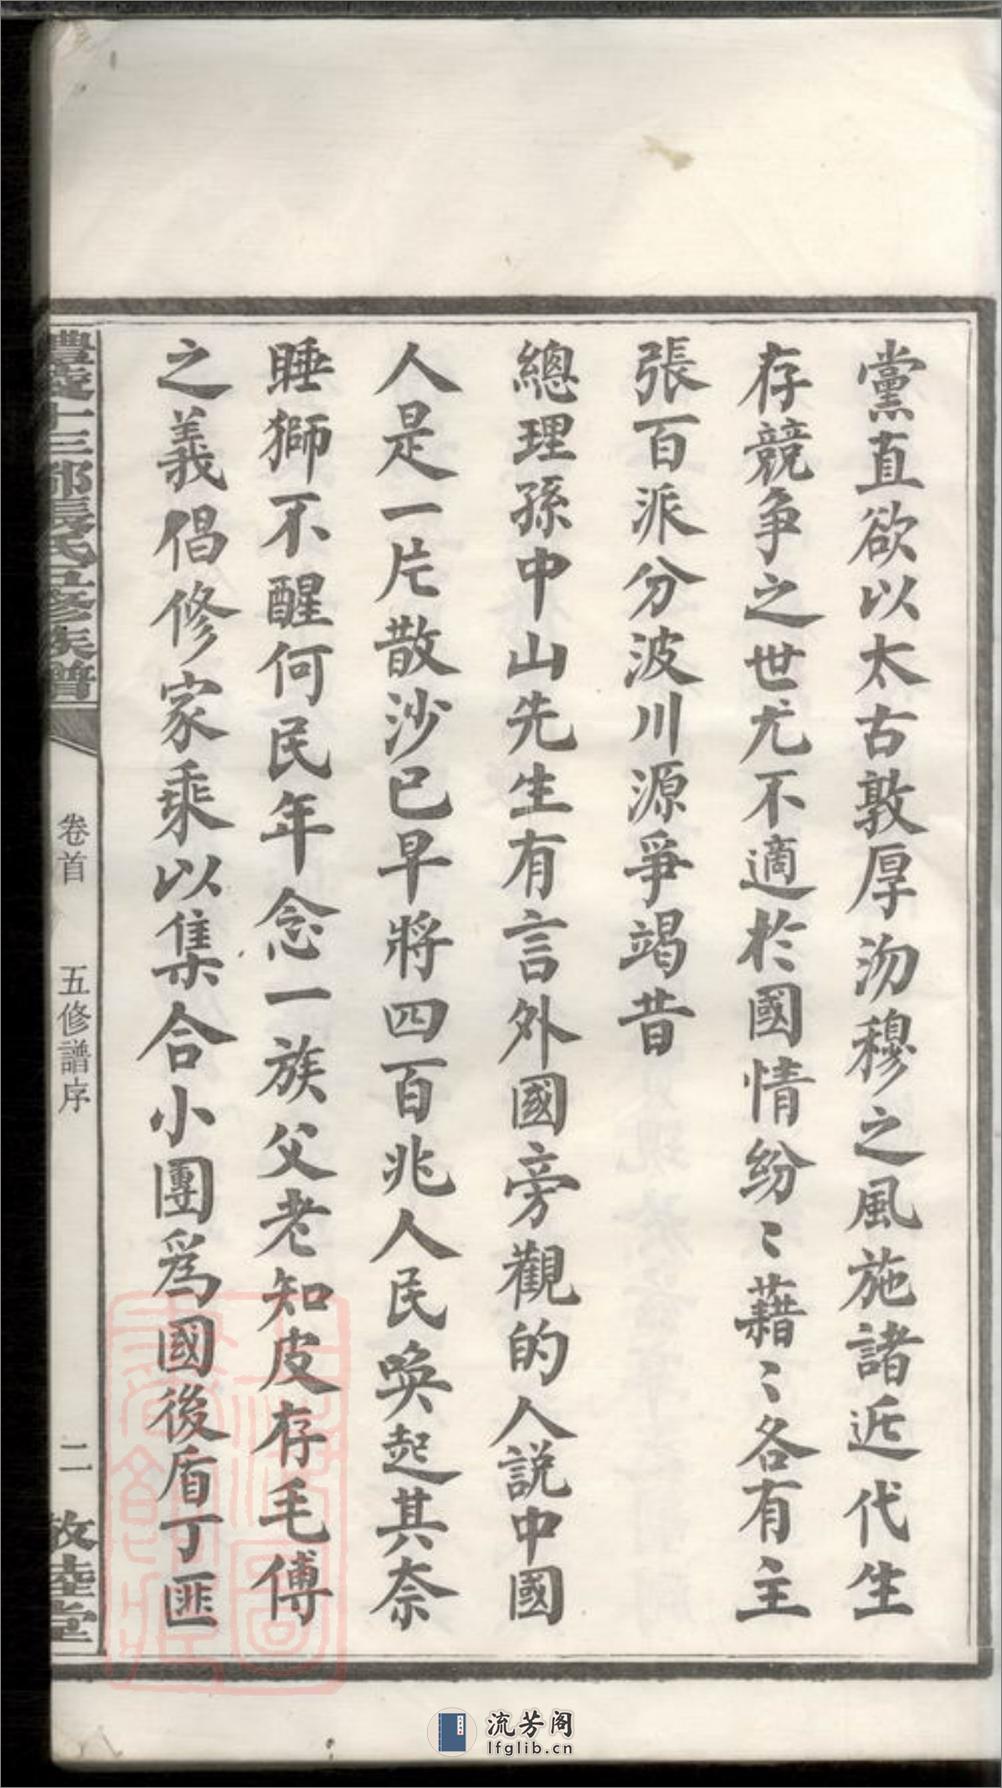 黨直欲以太古敦厚沕穆之風施諸近代生
存競争之世尤不適於國情紛〻藉〻各有主
張百派分波川源爭竭昔
總理孫中山先生有言外國旁觀的人説中國
人是一片散沙已早將四百兆人民喚起其奈
睡獅不醒何民年念一族父老知皮存毛傅
之義倡修家乘以集合小團爲國後盾丁匪
醴陵十三都張氏五修族譜
卷首
五修譜序
二
敦睦堂
流芳阁
lfglib.cn